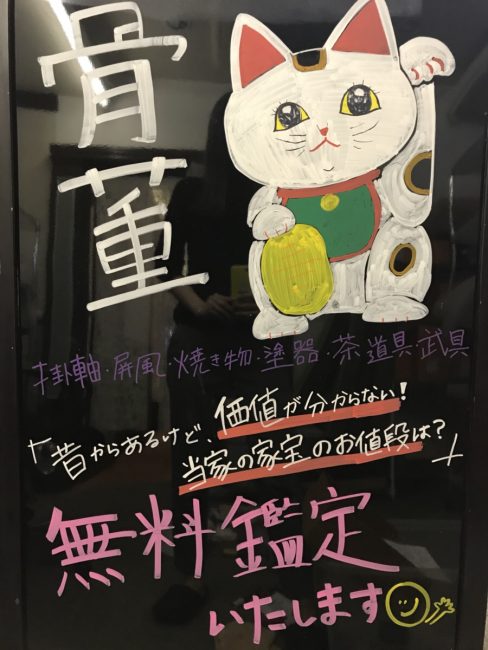 骨董
掛軸・屏風・焼き物・塗器・茶道具・武具
「昔からあるけど、価値が分からない!
当家の家宝のお値段は?」
無料鑑定
いたします